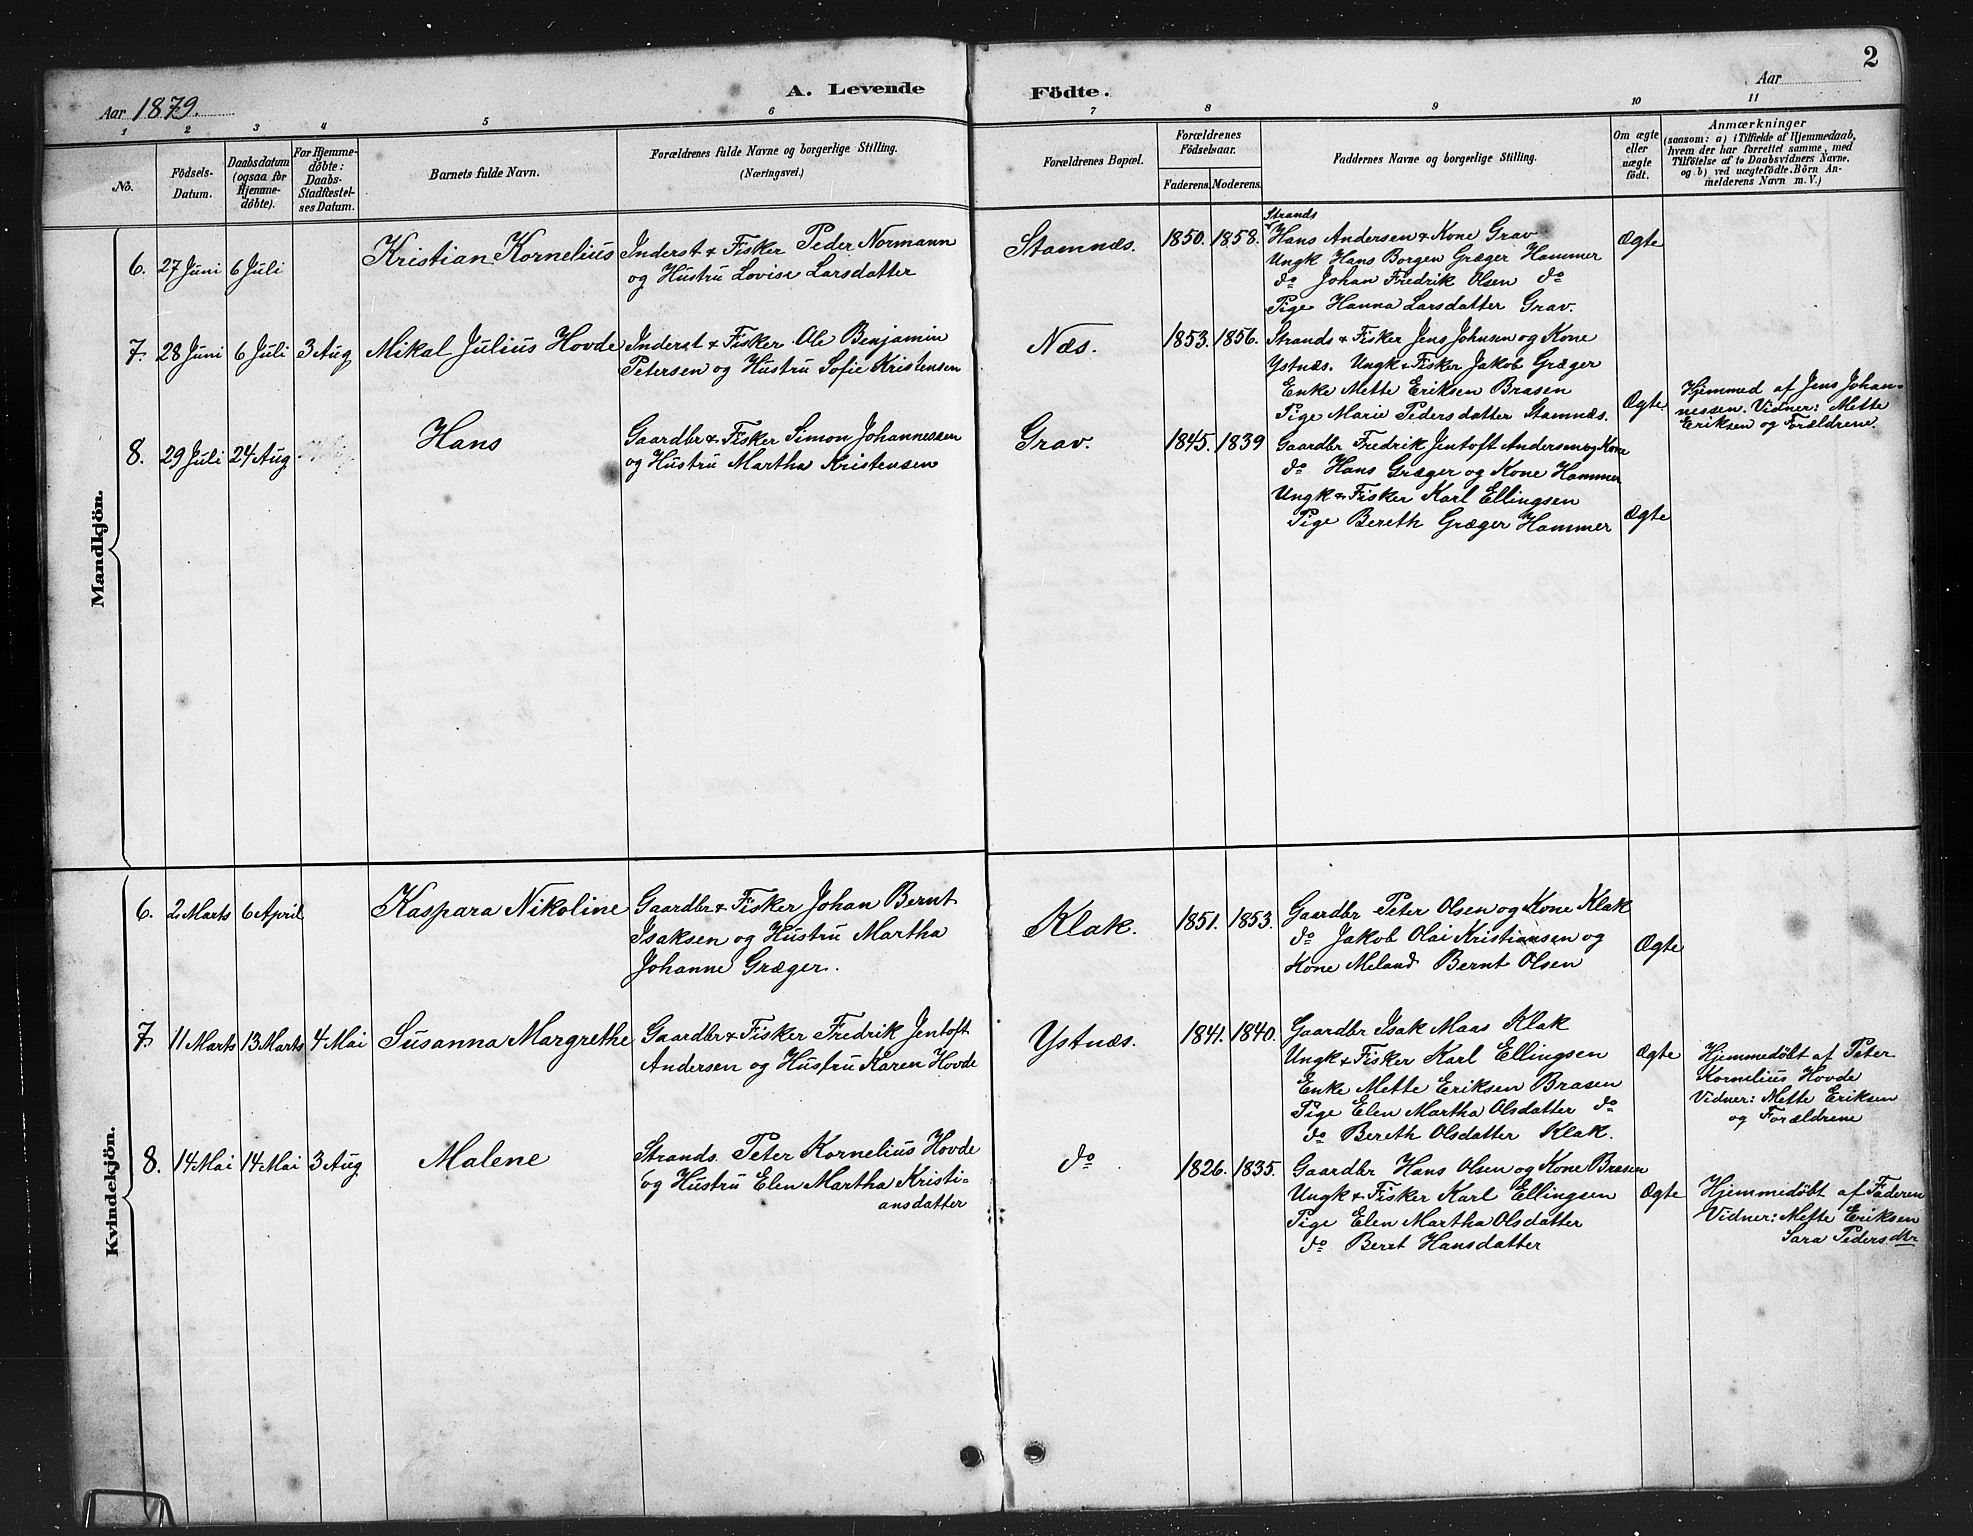 2
Aar 1879.
A. Levende Födte.
Aar
1 2 3 4 5 6 7 8 9 10 11
No.
Födsels-Datum.
Daabsdatum (ogsaa för Hjemme-döbte).
For Hjemme-döbte: Daabs-Stadfæstel-ses Datum.
Barnets fulde Navn.
Forældrenes fulde Navne og borgerlige Stilling.
(Næringsvei.)
Forældrenes Bopæl.
Forældrenes Födselsaar.
Faderens. Moderens.
Faddernes Navne og borgerlige Stilling.
Om ægte eller uægte födt.
Anmærkninger
(saasom: a) i Tilfælde af Hjemmedaab,
hvem der har forrettet samme, med
Tilföielse af to Daabsvidners Navne,
og b) ved uægtefödte Börn An-
melderens Navn m. V.)
Mandkjön.
6. 27 Juni 6 Juli Kristian Kornelius
Inderst & Fisker Peder Normann
og Hustru Lovise Larsdatter
Stamnæs. 1850. 1858.
Strands
Hans Andersen & Kone Grav
Ungk Hans Borgen Græger Hammer
do Johan Fredrik Olsen do
Pige Hanna Larsdatter Grav.
Ægte
7. 28 Juni 6 Juli 3 Aug Mikal Julius Hovde
Inderst & Fisker Ole Benjamin
Petersen og Hustru Sofie Kristensen
Næs. 1853. 1856.
Strands & Fisker Jens Johnsen og Kone
Ystnæs. Ungk & Fisker Jakob Græger
Enke Mette Eriksen Brasen
Pige Marie Pedersdatter Stamnæs.
Ægte
Hjemmed af Jens Johan-
nessen. Vidner: Mette
Eriksen og Frældrene
8. 29 Juli 24 Aug Hans
Gaardbr & Fisker Simon Johannessen
og Hustru Martha Kristensen
Grav. 1845. 1839
Gaardbr Fredrik Jentoft Andersen og Kone
do Hans Græger og Kone Hammer
Ungk & Fisker Karl Ellingsen
Pige Bereth Græger Hammer
Ægte
Kvindekjön.
6. 2 Marts 6 April Kaspara Nikoline
Gaardbr & Fisker Johan Bernt
Isaksen og Hustru Martha
Johanne Græger.
Klak. 1851. 1853.
Gaardbr Peter Olsen og Kone Klak
do Jakob Olai Kristiansen og
Kone Meland Bernt Olsen
Ægte
7. 11 Marts 13 Marts 4 Mai Susanna Margrethe
Gaardbr & Fisker Fredrik Jentoft
Andersen og Hustru Karen Hovde
Ystnæs. 1841. 1840.
Gaardbr Isak Maas Klak
Ungk & Fisker Karl Ellingsen
Enke Mette Eriksen Brasen
Pige Elen Martha Olsdatter do
do Bereth Olsdatter Klak.
Ægte
Hjemmedøbt af Peter
Kornelius Hovde
Vidner: Mette Eriksen
og Forældrene
8. 14 Mai 14 Mai 3 Aug Malene
Strands. Peter Kornelius Hovde
og Hustru Elen Martha Kristi-
ansdatter
do 1826. 1835.
Gaardbr Hans Olsen og Kone Brasen
Ungk & Fisker Karl Ellingsen
Pige Elen Martha Olsdatter
do Beret Hansdatter
Ægte
Hjemmedøbt af Faderen
Vidner: Mette Eriksen
Sara Pedersdtr